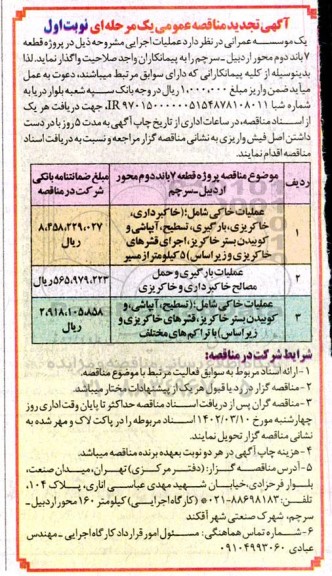 آگهی تجدید مناقصه عمومی یک مرحله‌ای نوبت اول
یک موسسه عمرانی در نظر دارد عملیات اجرایی مشروحه ذیل در پروژه قطعه
۷ باند دوم محور اردبیل ـ سرچم را به پیمانکاران واجد صلاحیت واگذار نماید. لذا
بدینوسیله از کلیه پیمانکارانی که دارای سوابق مرتبط میباشند، دعوت به عمل
میآید ضمن واریز مبلغ ۱۰،۰۰۰،۰۰۰ ریال در وجه بانک سپه شعبه بلوار دریا به
شماره شبا IR۹۷۰۱۵۰۰۰۰۰۰۵۱۵۴۸۷۸۱۰۸۰۱۱، جهت دریافت هر یک
از اسناد مناقصه، در ساعات اداری از تاریخ چاپ آگهی به مدت ۵ روز با در دست
داشتن اصل فیش واریزی به نشانی مناقصه گزار مراجعه و نسبت به دریافت اسناد
مناقصه اقدام نمایند.
ردیف | موضوع مناقصه پروژه قطعه ۷ باند دوم محور اردبیل ـ سرچم | مبلغ ضمانتنامه بانکی شرکت در مناقصه
۱ | عملیات خاکی شامل: (خاکبرداری، خاکریزی، بارگیری، تسطیح، آبپاشی و کوبیدن بستر خاکریز، اجرای قشرهای خاکریزی و زیراساس) ۵ کیلومتر از مسیر | ۸،۴۵۸،۲۲۹،۰۲۷ ریال
۲ | عملیات بارگیری و حمل مصالح خاکبرداری و خاکریزی | ۵۶۵،۹۷۹،۲۲۳ ریال
۳ | عملیات خاکی شامل: (تسطیح، آبپاشی، و کوبیدن بستر خاکریز، قشرهای خاکریزی و زیراساس) با تراکم های مختلف | ۲،۹۱۸،۱۰۵،۸۵۸ ریال
شرایط شرکت در مناقصه:
۱- ارائه اسناد مربوط به سوابق فعالیت مرتبط با موضوع مناقصه.
۲- مناقصه گزار در رد یا قبول هر یک از پیشنهادات مختار میباشد.
۳- مناقصه گران پس از دریافت اسناد مناقصه حداکثر تا پایان وقت اداری روز
چهارشنبه مورخ ۱۴۰۲/۰۳/۱۰ اسناد مربوطه را در پاکت لاک و مهر شده به
نشانی مناقصه گزار تحویل نمایند.
۴- هزینه چاپ آگهی در هر دو نوبت بعهده برنده مناقصه میباشد.
۵- آدرس مناقصه گزار: (دفتر مرکزی) تهران، میدان صنعت،
بلوار فرحزادی، خیابان شهید مهدی عباسی اناری، پلاک ۱۰۴،
تلفن: ۸۸۶۹۸۱۸۳-۰۲۱ * (کارگاه اجرایی) کیلومتر ۱۶۰ محور اردبیل ـ
سرچم، شهرک صنعتی شهر آقکند
۶- شماره تماس هماهنگی: مسئول امور قرارداد کارگاه اجرایی ـ مهندس
عبادی ۰۹۱۰۴۹۹۳۰۶۰